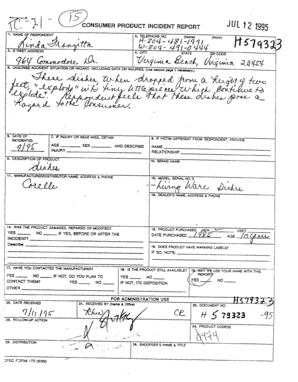 CONSUMER PRODUCT INCIDENT REPORT
JUL 12 1995
1. NAME OF RESPONDENT
Linda Frangitta
2. TELEPHONE NO. (Home) (Work)
H-804-481-1991
W-804-491-0444
H579323
3. STREET ADDRESS
964 Commodore Dr.
CITY STATE ZIP CODE
Virginia Beach, Virginia 23454
These dishes when dropped from a height of two
feet, "explode" into tiny little pieces which continue to
"explode". Respondent feels that these dishes pose a
hazard to the consumer.
6. DATE OF INCIDENT(S)
0/95
7. IF INJURY OR NEAR MISS, OBTAIN
AGE SEX AND DESCRIBE
INJURY
8. IF VICTIM DIFFERENT FROM RESPONDENT, PROVIDE
NAME
RELATIONSHIP
9. DESCRIPTION OF PRODUCT
dishes
10. BRAND NAME
11. MANUFACTURER/DISTRIBUTOR NAME, ADDRESS & PHONE
Corelle
12. MODEL, SERIAL NO.'S
Living Ware Dishes
13. DEALER'S NAME, ADDRESS & PHONE
14. WAS THE PRODUCT DAMAGED, REPAIRED OR MODIFIED?
YES NO IF YES, BEFORE OR AFTER THE
INCIDENT?
Describe
15. PRODUCT PURCHASED NEW USED
DATE PURCHASED 1985 AGE 10 years
16. DOES PRODUCT HAVE WARNING LABELS?
IF SO, NOTE:
17. HAVE YOU CONTACTED THE MANUFACTURER?
YES NO IF NOT, DO YOU PLAN TO
CONTACT THEM? YES NO
18. IS THE PRODUCT STILL AVAILABLE?
YES NO
IF NOT, ITS DISPOSITION
19. MAY WE USE YOUR NAME WITH THIS
REPORT?
YES NO
FOR ADMINISTRATION USE
H579323
20. DATE RECEIVED
7/11/95
21. RECEIVED BY (Name & Office)
CR
22. DOCUMENT NO.
H 5 79323 -95
23. FOLLOW-UP ACTION
24. PRODUCT CODE(S)
0474
25. DISTRIBUTION
26. ENDORSER'S NAME & TITLE
CPSC FORM 175